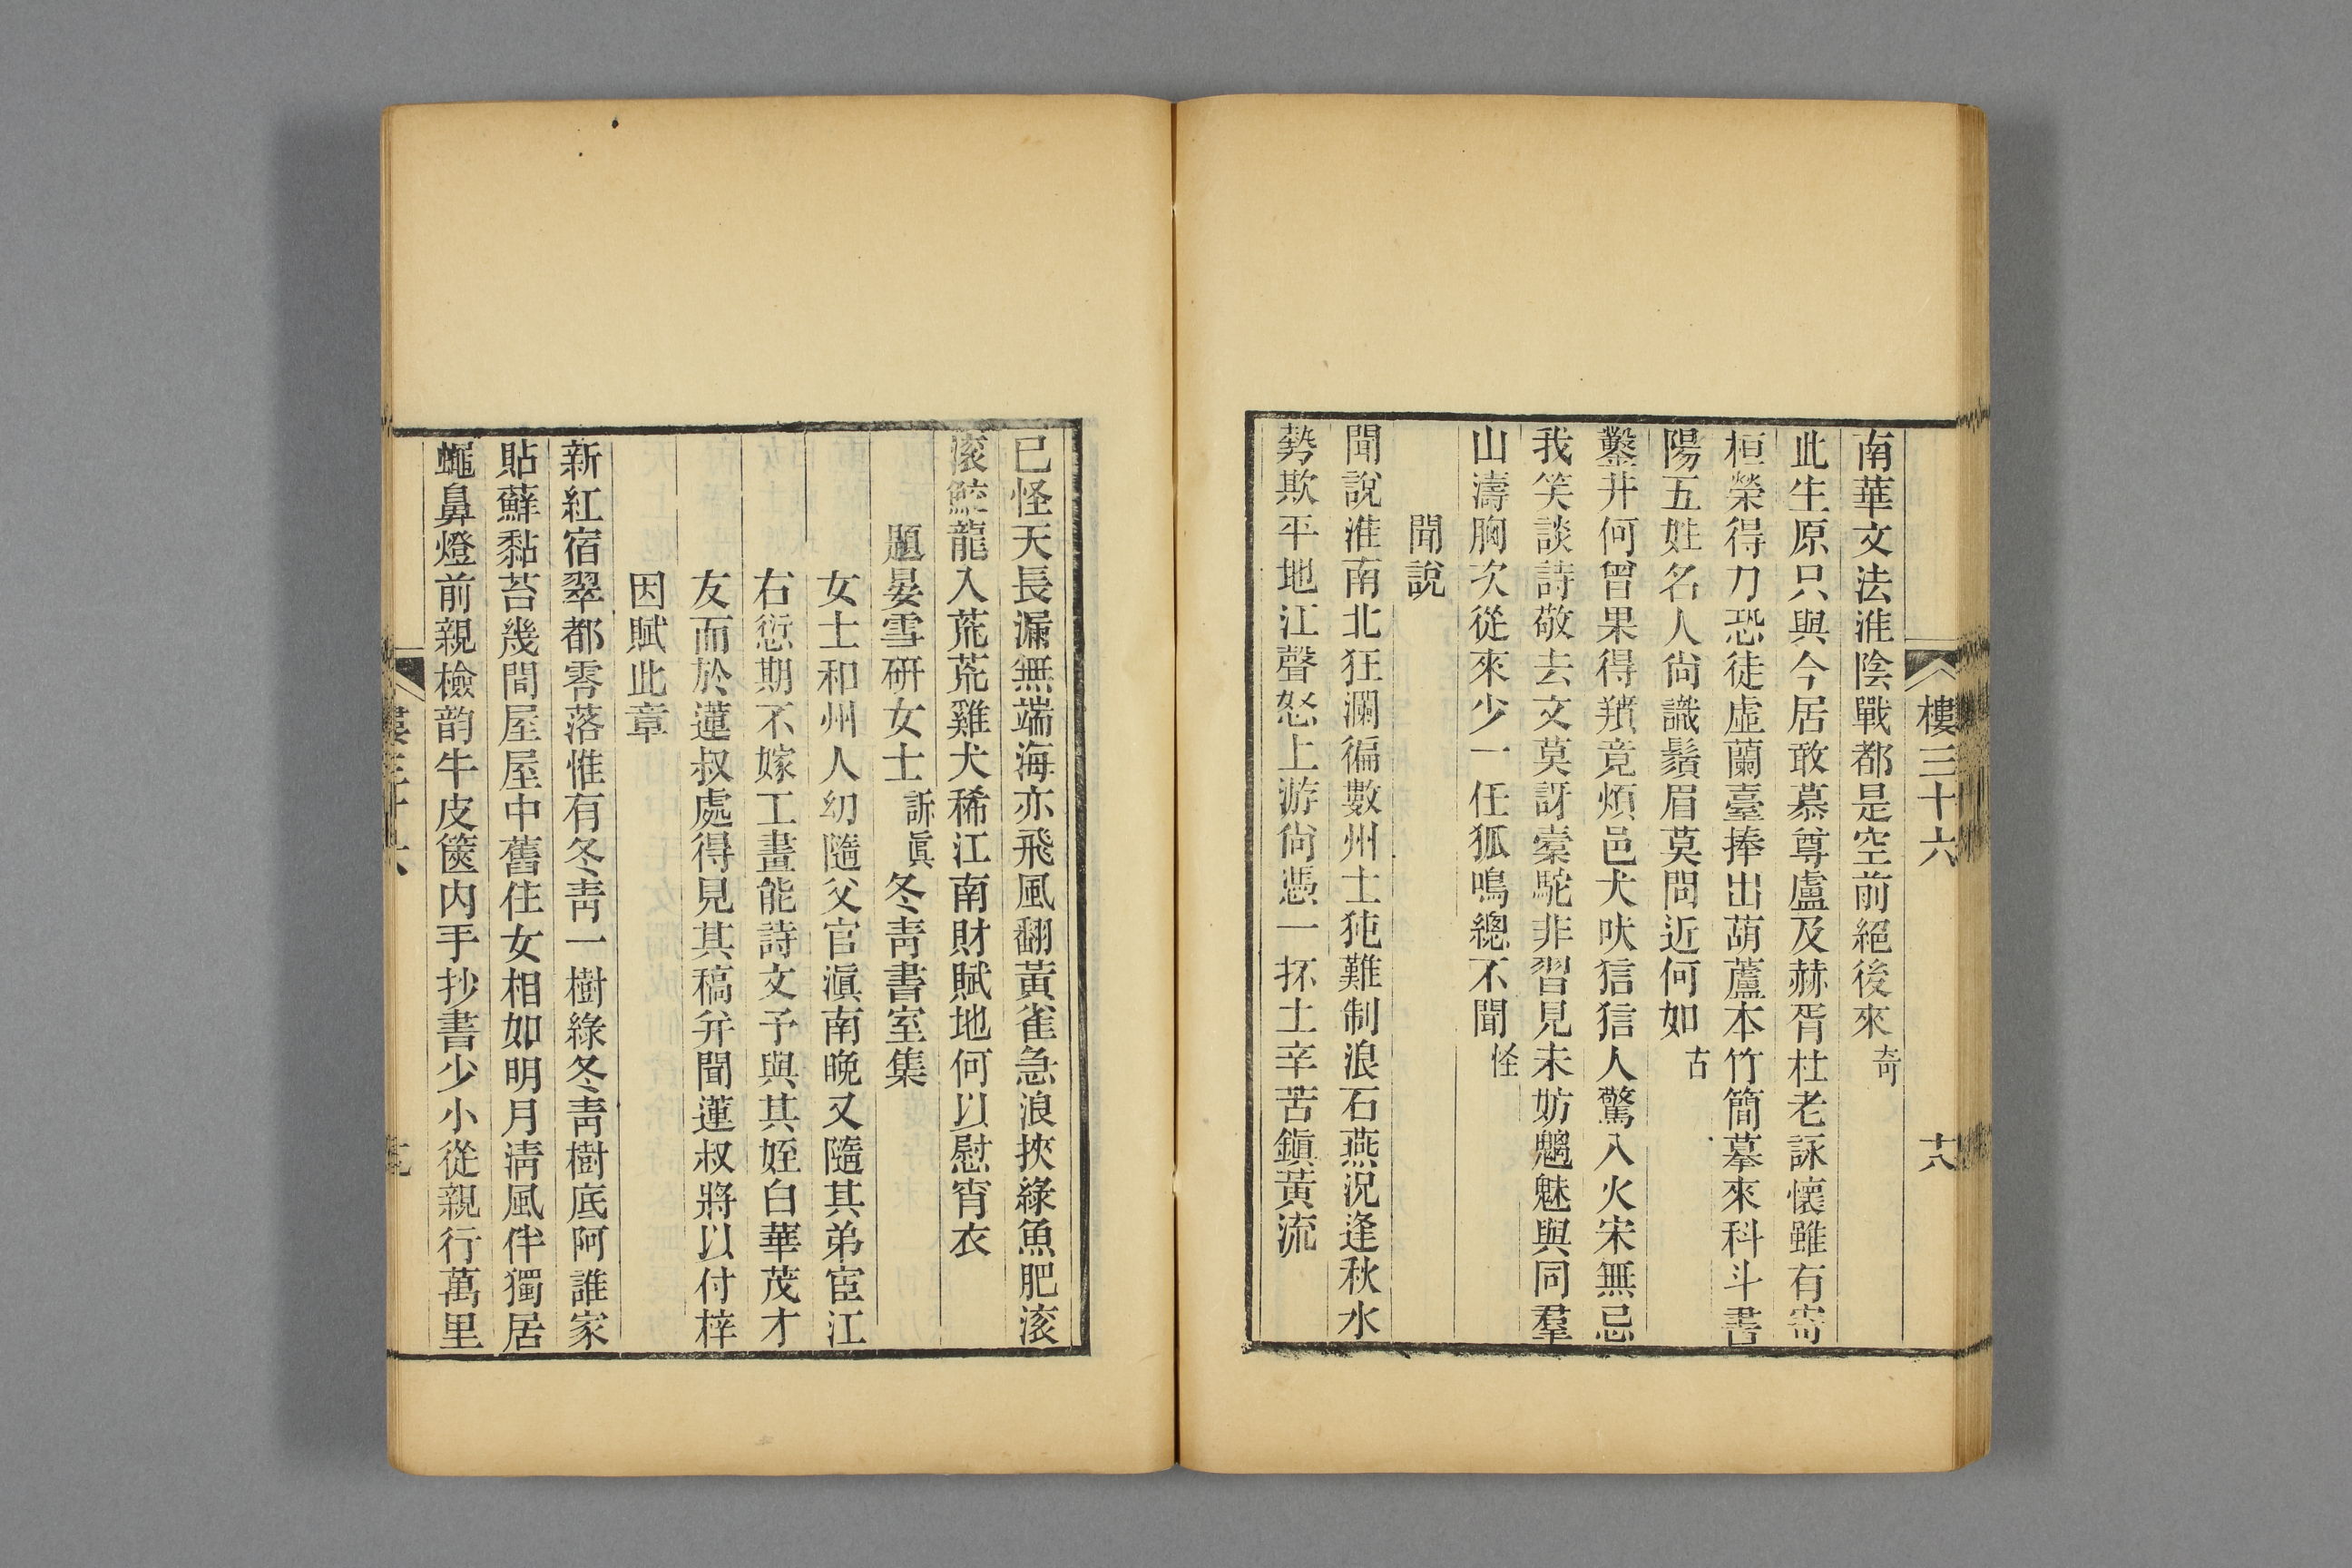 樓三十六
十八
南華文法淮陰戰都是空前絕後來奇
此生原只與今居敢慕尊盧及赫胥杜老詠懷雖有寄
桓榮得力恐徒虛蘭臺捧出葫蘆本竹簡摹來科斗書
陽五姓名人尙識鬚眉莫問近何如古
鑿井何曾果得羵竟煩邑犬吠信信人驚入火宋無忌
我笑談詩敬去文莫訝槖駝非習見未妨魑魅與同羣
山濤胸次從來少一任狐鳴總不聞怪
聞說
聞說淮南北狂瀾徧數州士犺難制浪石燕況逢秋水
勢欺平地江聲怒上游尙憑一抔土辛苦鎮黃流
已怪天長漏無端海亦飛風翻黃雀急浪挾綠魚肥滚
滚鮫龍入荒荒雞犬稀江南財賦地何以慰宵衣
題晏雪研女士訴眞冬靑書室集
女士和州人幼隨父官滇南晚又隨其弟宦江
右愆期不嫁工畫能詩文予與其姪白華茂才
友而於蓮叔處得見其稿幷聞蓮叔將以付梓
因賦此章
新紅宿翠都零落惟有冬靑一樹綠冬靑樹底阿誰家
貼蘚黏苔幾間屋屋中舊住女相如明月淸風伴獨居
蠅鼻燈前親檢韵牛皮篋内手抄書少小從親行萬里
樓三十六